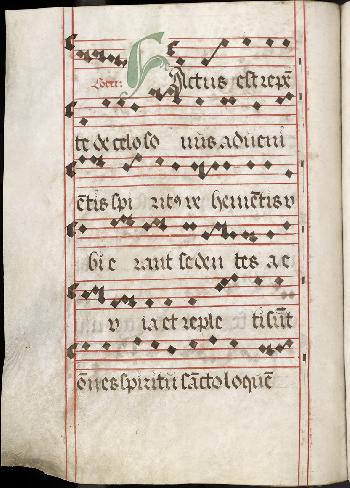 Com̄. Factus est repē
te de celo so nus adueni
ētis spi ritus ve hemētis v
bi e rant seden tes a e
v ia et reple ti sūt
ōnes spiritu sācto loquē